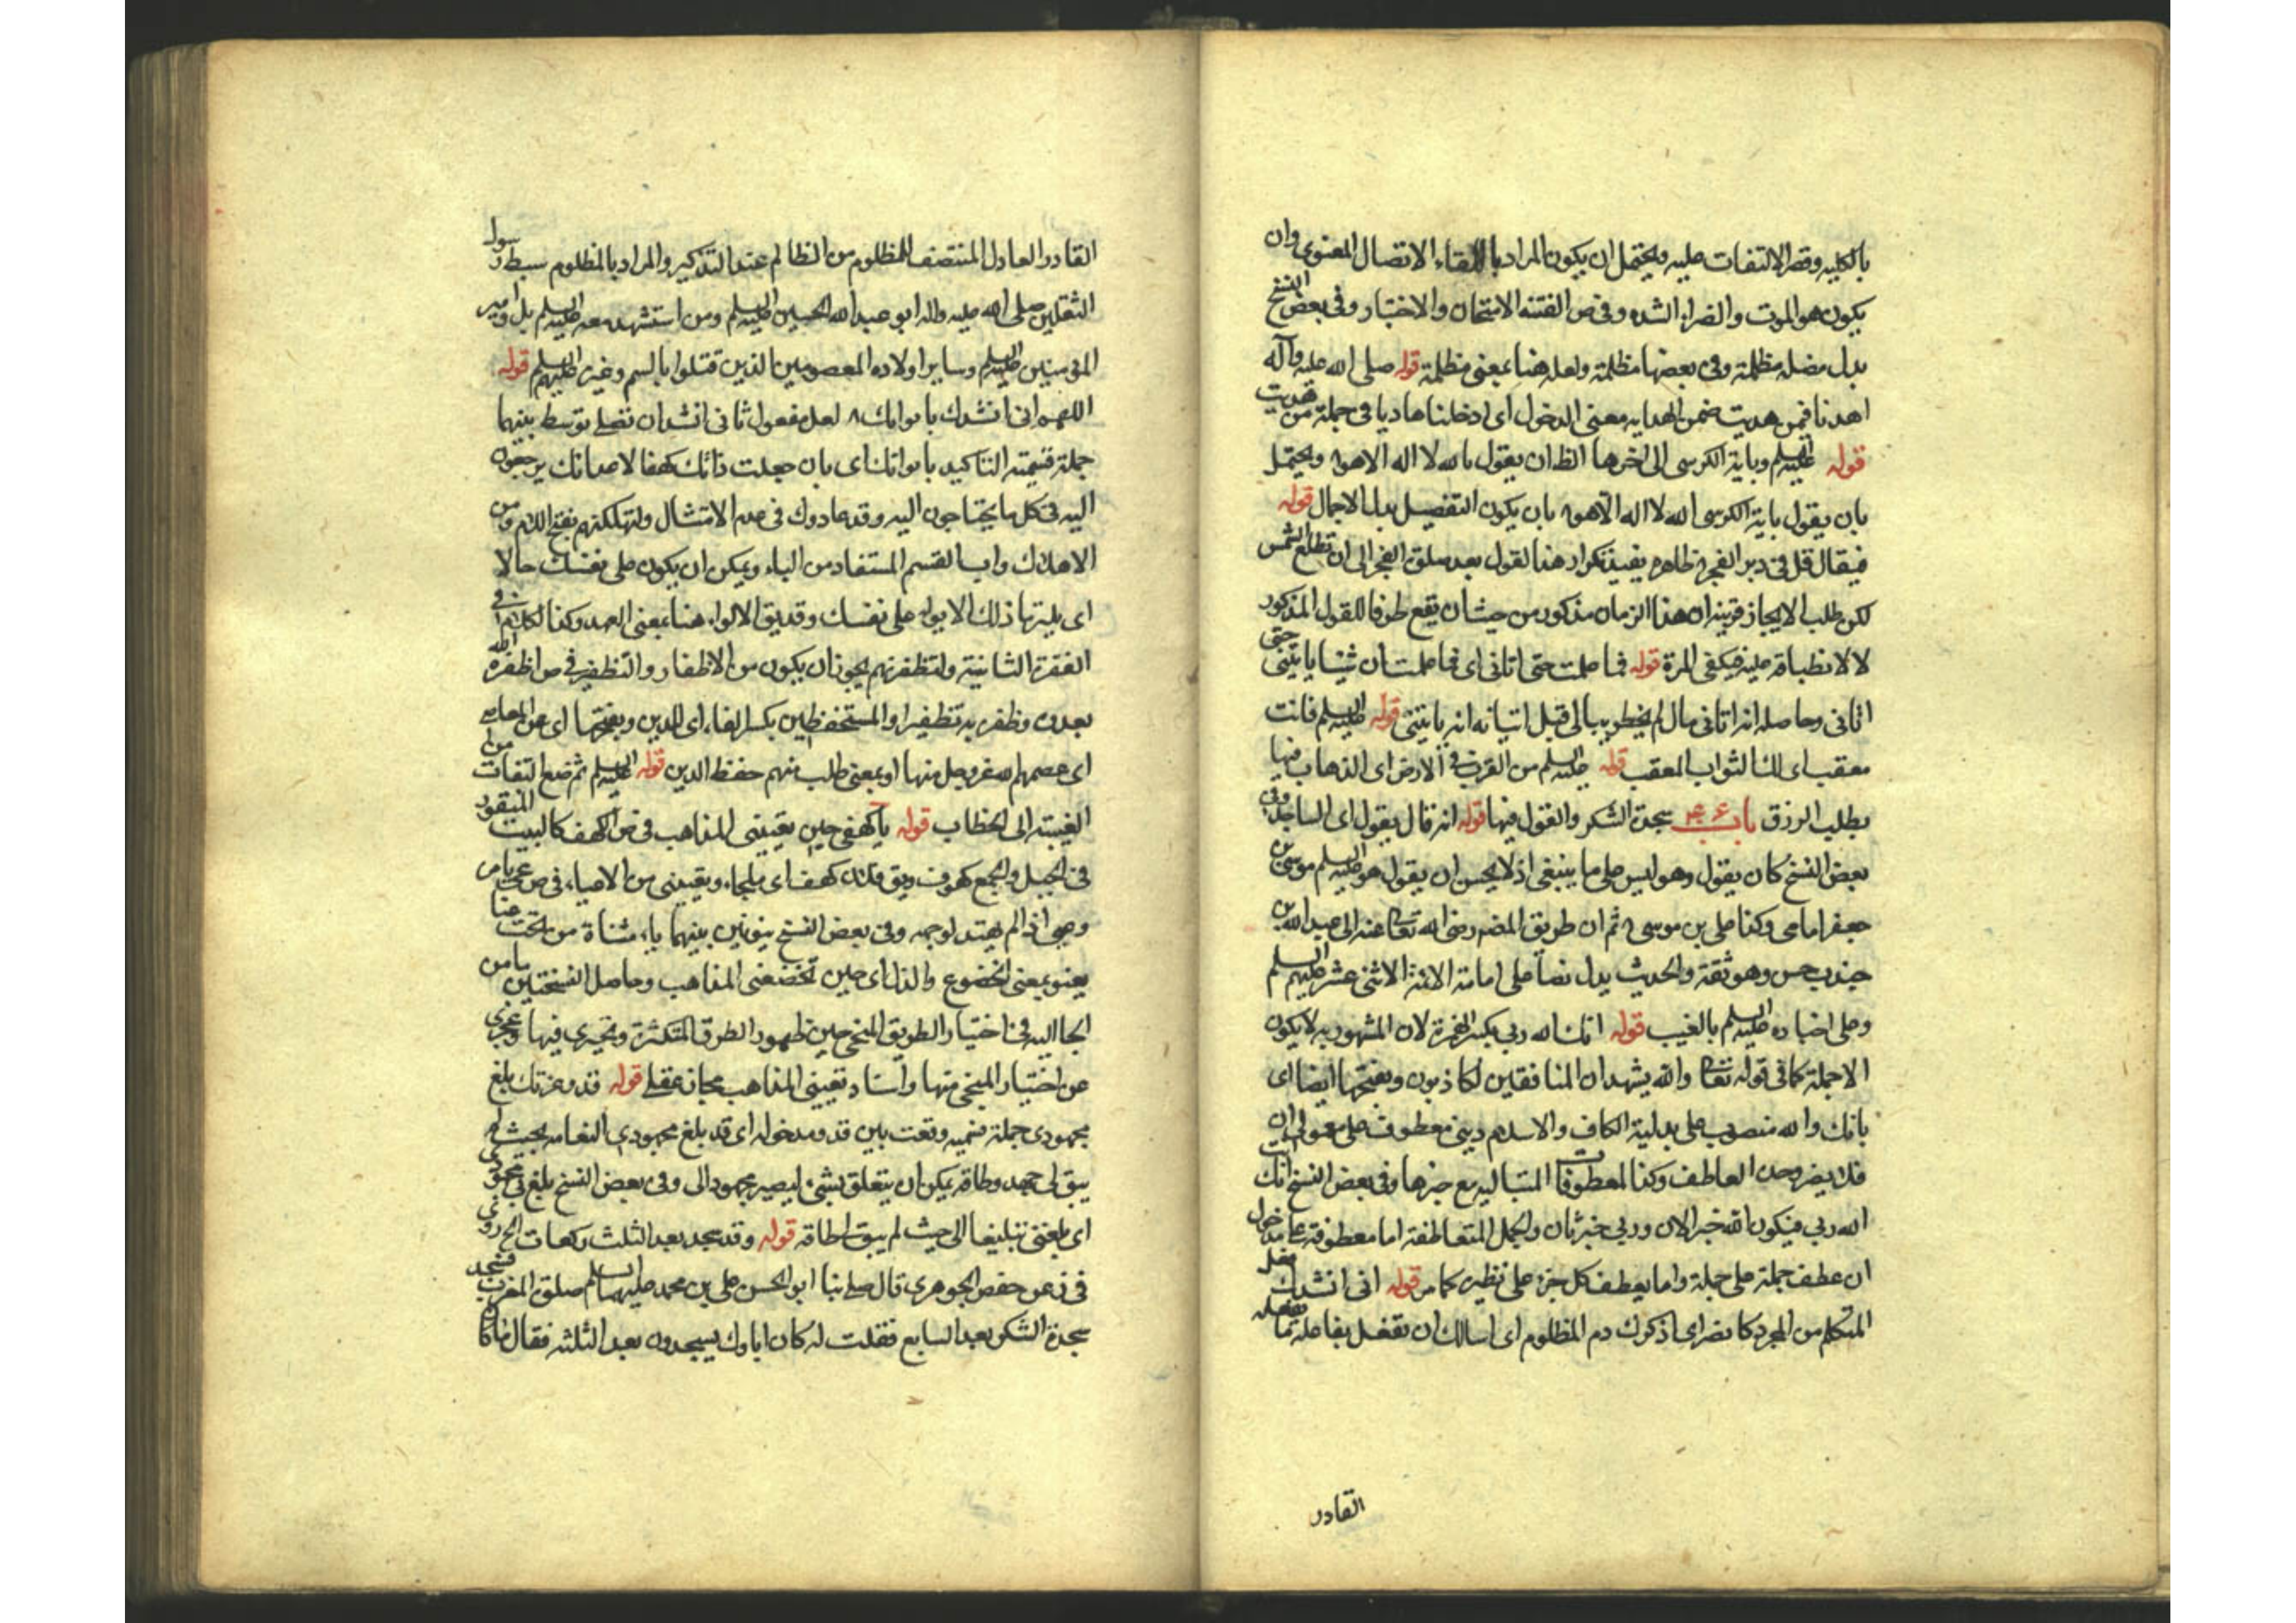 بالكليه وقصر الالتفات عليه ويحتمل ان يكون المراد باللقاء الاتصال المعنوى وان
يكون هو الموت والضراء الشده وفى ص الفتنه الامتحان والاختبار وفى بعض النسخ
بدل مضله مظلمة وفى بعضها مظلمة ولعله هنا بمعنى مظلمة قوله صلى الله عليه وآله
اهدنا فيمن هديت ضمن الهدايه معنى الدخول اى ادخلنا هاديا فى جملة من هديت
قوله عليه السلم وباية الكرسى الى اخرها الظ ان يقول بالله لا اله الا هو ويحتمل
بان يقول باية الكرسى الله لا اله الا هو بان يكون التفصيل بدل الاجمال قوله
فيقال قل فى دبر الفجر ظاهره يفيد تكرار هذا القول بعد صلوة الفجر الى ان تطلع الشمس
لكن طلب الايجاز قرينه ان هذا الزمان مذكور من حيث ان يقع ظرفا للقول المذكور
لا لانطباقه عليه فيكفى المرة قوله فما علمت حتى اتانى اى فما علمت ان شيئا ياتينى حتى
اتانى وحاصله انه اتانى مال لم يخطر ببالى قبل اتيانه انه ياتينى قوله عليه السلم فانت
معقب اى لك الثواب المعقب قوله عليه السلم من الضرب فى الارض اى الذهاب فيها
بطلب الرزق باب سجدة الشكر والقول فيها قوله انه قال يقول اى الساجد وفى
بعض النسخ كان يقول وهو ليس على ما ينبغى اذ لا يحسن ان يقول هو عليه السلم موسى بن
جعفر امامى وكذا على بن موسى ثم ان طريق المصه رضى الله تعالى عنه الى عبد الله بن
جندب حسن وهو ثقة والحديث يدل نصا على امامة الائمة الاثنى عشر عليهم السلم
وعلى اخباره عليه السلم بالغيب قوله انك الله ربى بكسر الهمزة لان المشهود به لا يكون
الا جملة كما فى قوله تعالى والله يشهد ان المنافقين لكاذبون وبفتحها ايضا اى
بانك والله منصوب على بدلية الكاف والاسلام دينى معطوف على معمولى ان
فلا يضر وحدة العاطف وكذا المعطوفات التاليه مع خبرها وفى بعض النسخ انك انت
الله ربى فيكون الله خبر الان وربى خبر ثان والجمل المتعاطفة اما معطوفة على مدخول
ان عطف جملة على جملة واما يعطف كل جزء على نظيره كما مر قوله انى انشدك
المتكلم من المجرد كانصر اى اذكرك دم المظلوم اى اسالك ان تفعل بفاعله ما
القادر
القادر العادل المنتصف للمظلوم من الظالم عند التذكير والمراد بالمظلوم سبط رسول
الثقلين صلى الله عليه واله ابو عبد الله الحسين عليه السلم ومن استشهد معه عليه السلم بل امير
المؤمنين عليه السلم وساير اولاده المعصومين الذين قتلوا بالسم وغيره عليهم السلم قوله
اللهم انى انشدك بايوائك لعل مفعول ثانى انشد ان تصلى توسط بينهما
جملة قسمية للتاكيد بايوائك اى بان جعلت ذاتك كهفا لاعدائك يرجعون
اليه فى كل ما يحتاجون اليه وقد عادوك فى عدم الامتثال ولتهلكنهم بفتح اللام من
الاهلاك جواب القسم المستفاد من الباء ويمكن ان يكون على نفسك حالا
اى ملتزما ذلك الايواء على نفسك وقد يق الايواء هنا بمعنى العهد وكذا الكلام فى
الفقرة الثانية ولتظفرنهم يجوز ان يكون من الاظفار والتظفير فى ص اظفره الله
بعدوه وظفره به تظفيرا والمستحفظين بكسر الفاء اى للدين وبفتحها اى عن المعاصى
اى عصمهم الله عز وجل منها او بمعنى طلب منهم حفظ الدين قوله عليه السلم ثم ضع التفات من
الغيبة الى الخطاب قوله يا كهفى حين تعيينى المذاهب فى ص الكهف كالبيت المنقور
فى الجبل والجمع كهوف ويق فلان كهف اى ملجاء وتعيينى من الاعياء فى ص
وعيى اذا لم يهتد لوجهه وفى بعض النسخ بنونين بينهما ياء مثناة من تحت من عنا
يعنو بمعنى الخضوع والذل اى حين تخضعنى المذاهب وحاصل النسختين يا من
الجا اليه فى اختيار الطريق المنجى حين ظهور الطرق المتكثرة وتحيرى فيها وعجزى
عن اختيار المنجى منها واسناد تعيينى المذاهب مجاز عقلى قوله قد وعزتك بلغ
مجهودى جملة قسميه وقعت بين قد ومدخوله اى قد بلغ مجهودى الغاية بحيث لم
يبق لى جهد وطاقة يمكن ان يتعلق بشىء ليصير مجهودا لى وفى بعض النسخ بلغ بى مجهودى
اى بلغنى تبليغا الى حيث لم يبق لى طاقة قوله وقد سجد بعد الثلث ركعات الخ روى
فى ئب عن حفص الجوهرى قال صلى بنا ابو الحسن على بن محمد عليهما السلم صلوة المغرب فسجد
سجدة الشكر بعد السابع فقلت له كان اباوك يسجدون بعد الثلثه فقال ما كان